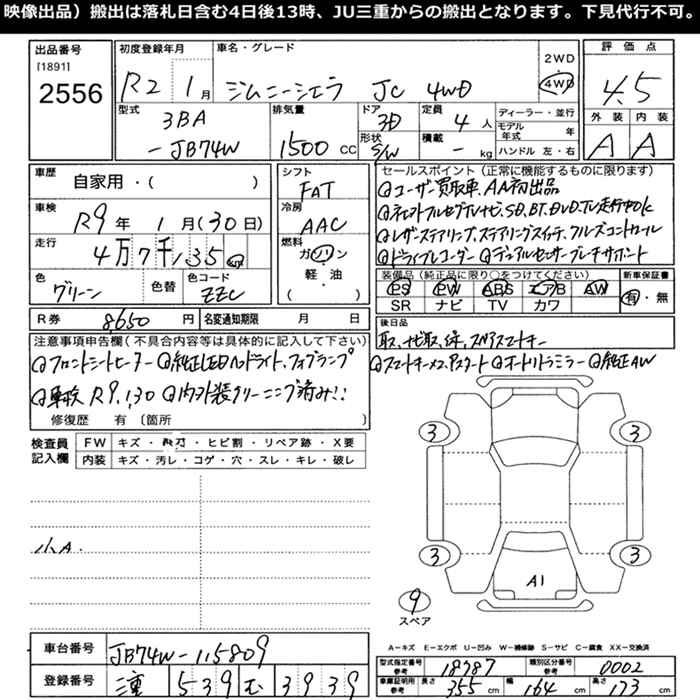 映像出品）搬出は落札日含む4日後13時、JU三重からの搬出となります。下見代行不可。
出品番号
[1891]
2556
初度登録年月
R2 1月
車名・グレード
ジムニーシエラ JC 4WD
2WD
4WD
評価点
4.5
外装 内装
A A
型式
3BA
-JB74W
排気量
1500 CC
ドア
3D
形状
S/W
定員
4人
積載
- kg
ディーラー・並行
モデル年式 年
ハンドル 左・右
車歴
自家用・( )
車検
R9年 1月(30日)
走行
4万7千135 km
色
グリーン
色替
色コード
ZZC
シフト
FAT
冷房
AAC
燃料
ガソリン
軽・油
( )
セールスポイント（正常に機能するものに限ります）
@ユーザー買取車、AA初出品
@ナビ フルセグTVナビ、SD、BT、DVD、TV走行中OK
@レザーステアリング、ステアリングスイッチ、クルーズコントロール
@ドライブレコーダー @デュアルセンサーブレーキサポート
装備品（純正品に限り○をつけてください）
PS PW ABS エアB AW
SR ナビ TV カワ
新車保証書
有・無
R券 8650円
名変通知期限 月 日
後日品
取、ナビ取、保、スペアスマートキー
注意事項申告欄（不具合内容等は具体的に記入して下さい）
@フロントシートヒーター @純正LEDヘッドライト、フォグランプ
@スマートキー×2、Pスタート @オートリトラミラー @純正AW
@車検R9,1,30 @内外装クリーニング済み!!
修復歴 有 〔箇所 〕
検査員記入欄
FW キズ・飛石・ヒビ割・リペア跡・X要
内装 キズ・汚レ・コゲ・穴・スレ・キレ・破レ
小A
3
3
3
3
A1
9
スペア
A=キズ E=エクボ U=凹み W=補修跡 S=サビ C=腐食 XX=交換済
車台番号
JB74W-115809
登録番号
三重 539 む 3939
型式指定番号
18787
類別区分番号
0002
車庫証明用
長さ 355cm 幅 164cm 高さ 173cm